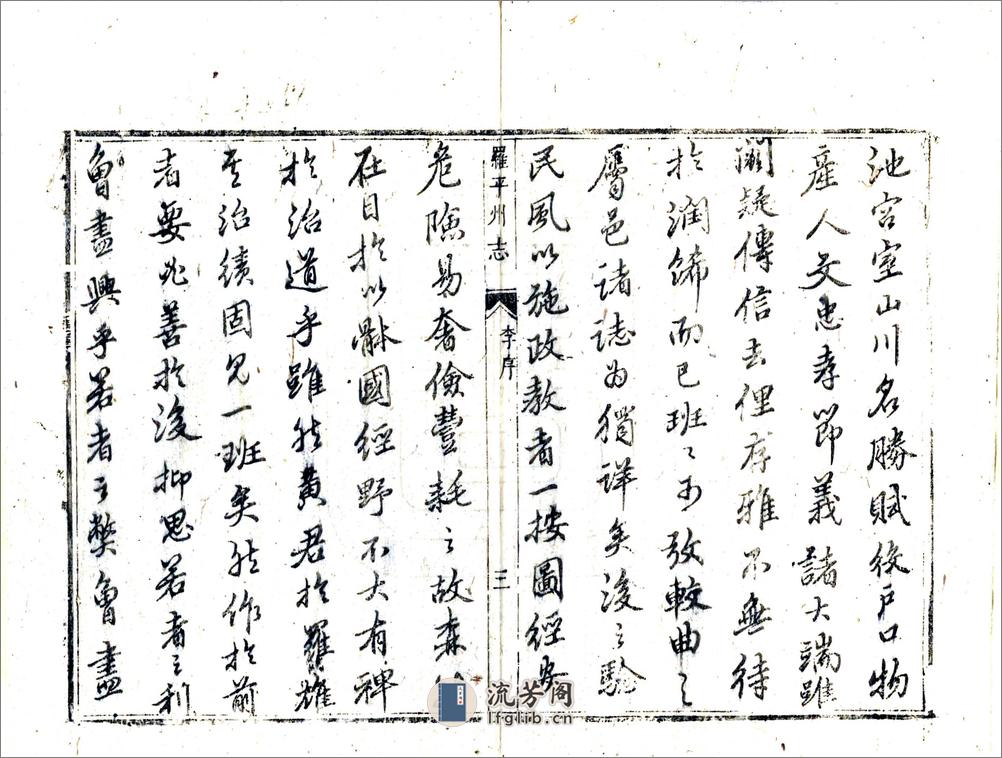 池宮室山川名勝賦役戶口物
產人文忠孝節義諸大端雖
闕疑傳信去俚存雅不無待
於潤餙而已班〻可攷較曲〻
屬邑諸誌为獨詳矣後之騐
民風以施政教者一按圖經安
羅平州志
李序
三
危險易奢儉豐耗之故森
在目於以骵國經野不大有裨
於治道乎雖然黃君於羅雄
其治績固見一班矣然作於前
者要兆善於後抑思若者之利
魯盡興乎若者之弊魯盡
流芳阁
lfglib.cn